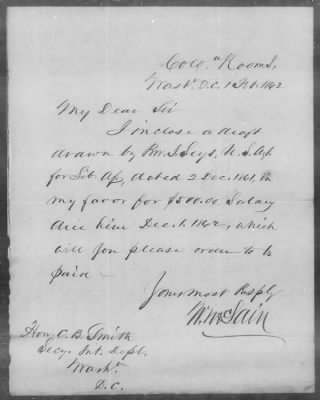 Colo.ⁿ Rooms,
Washⁿ D.C. 1 Feb. 1862
My Dear Sir
I inclose a draft
drawn by Rev. J. Seys, U.S. Agt
for Lib. Af, dated 2 Dec. 1861, in
my favor for $500.00 Salary
due him Dec. 1. 1862, which
will you please order to be
paid -
Yours most Resply
W. McLain
Hon. C. B. Smith
Secy. Int. Dept.
Washⁿ
D.C.